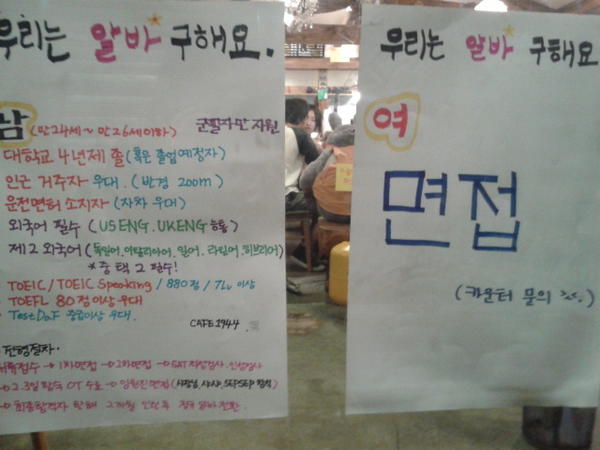 우리는 알바 구해요.
남 (만24세~ 만26세이하) 군필자만 지원
대학교 4년제 졸 (혹은 졸업예정자)
인근 거주자 우대. (반경 200m)
운전면허 소지자 (자차 우대)
외국어 필수 (US ENG. UK ENG 능통)
제2외국어 (독일어. 이탈리아어. 일어. 라틴어. 히브리어)
* 중 택 2 필수!
TOEIC / TOEIC Speaking / 880점 / 7Lv 이상
TOEFL 80점이상 우대
TestDaF 중급이상 우대.
CAFE 1944
전형절차.
서류접수 → 1차면접 → 2차면접 → SAT 직무검사. 인성검사
→ 2.3일 합숙 OT 수료 → 임원진면접
→ 최종합격자 한해 2개월 인턴 후 정규 알바 전환.
우리는 알바 구해요
여
면접
(카운터 문의)